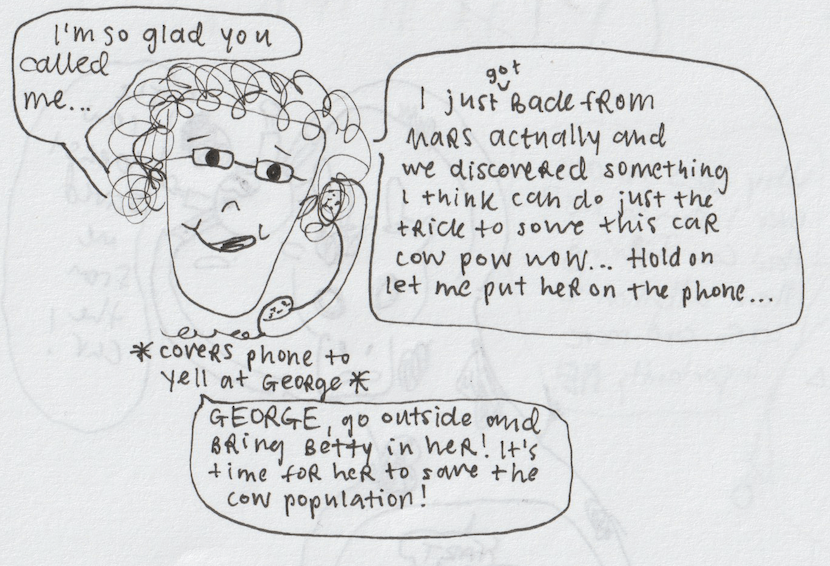 I'm so glad you
called
me...
got
I just Back from
Mars actually and
we discovered something
I think can do just the
trick to solve this car
cow pow wow... Hold on
let me put her on the phone...
*covers phone to
yell at George*
GEORGE, go outside and
Bring Betty in her! It's
time for her to save the
cow population!